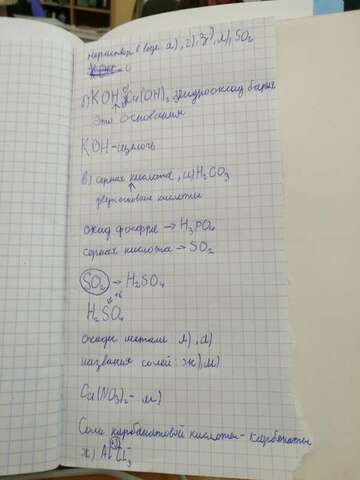 нераствор. в воде а), г), з), л), SO₂
КОН
КОН, Cu(OH)₂, гидроксид бария
это основания
КОН - щелочь
в) серная кислота, и) H₂CO₃
двухосновные кислоты
оксид фосфра → H₃PO₄
серная кислота → SO₂
SO₂ → H₂SO₄
+6
H₂SO₄
оксиды металл л), д)
названия солей: ж), м)
Ca(NO₃)₂ - м)
Соли карбонатовой кислоты - карбонаты
ж) AlCl₃